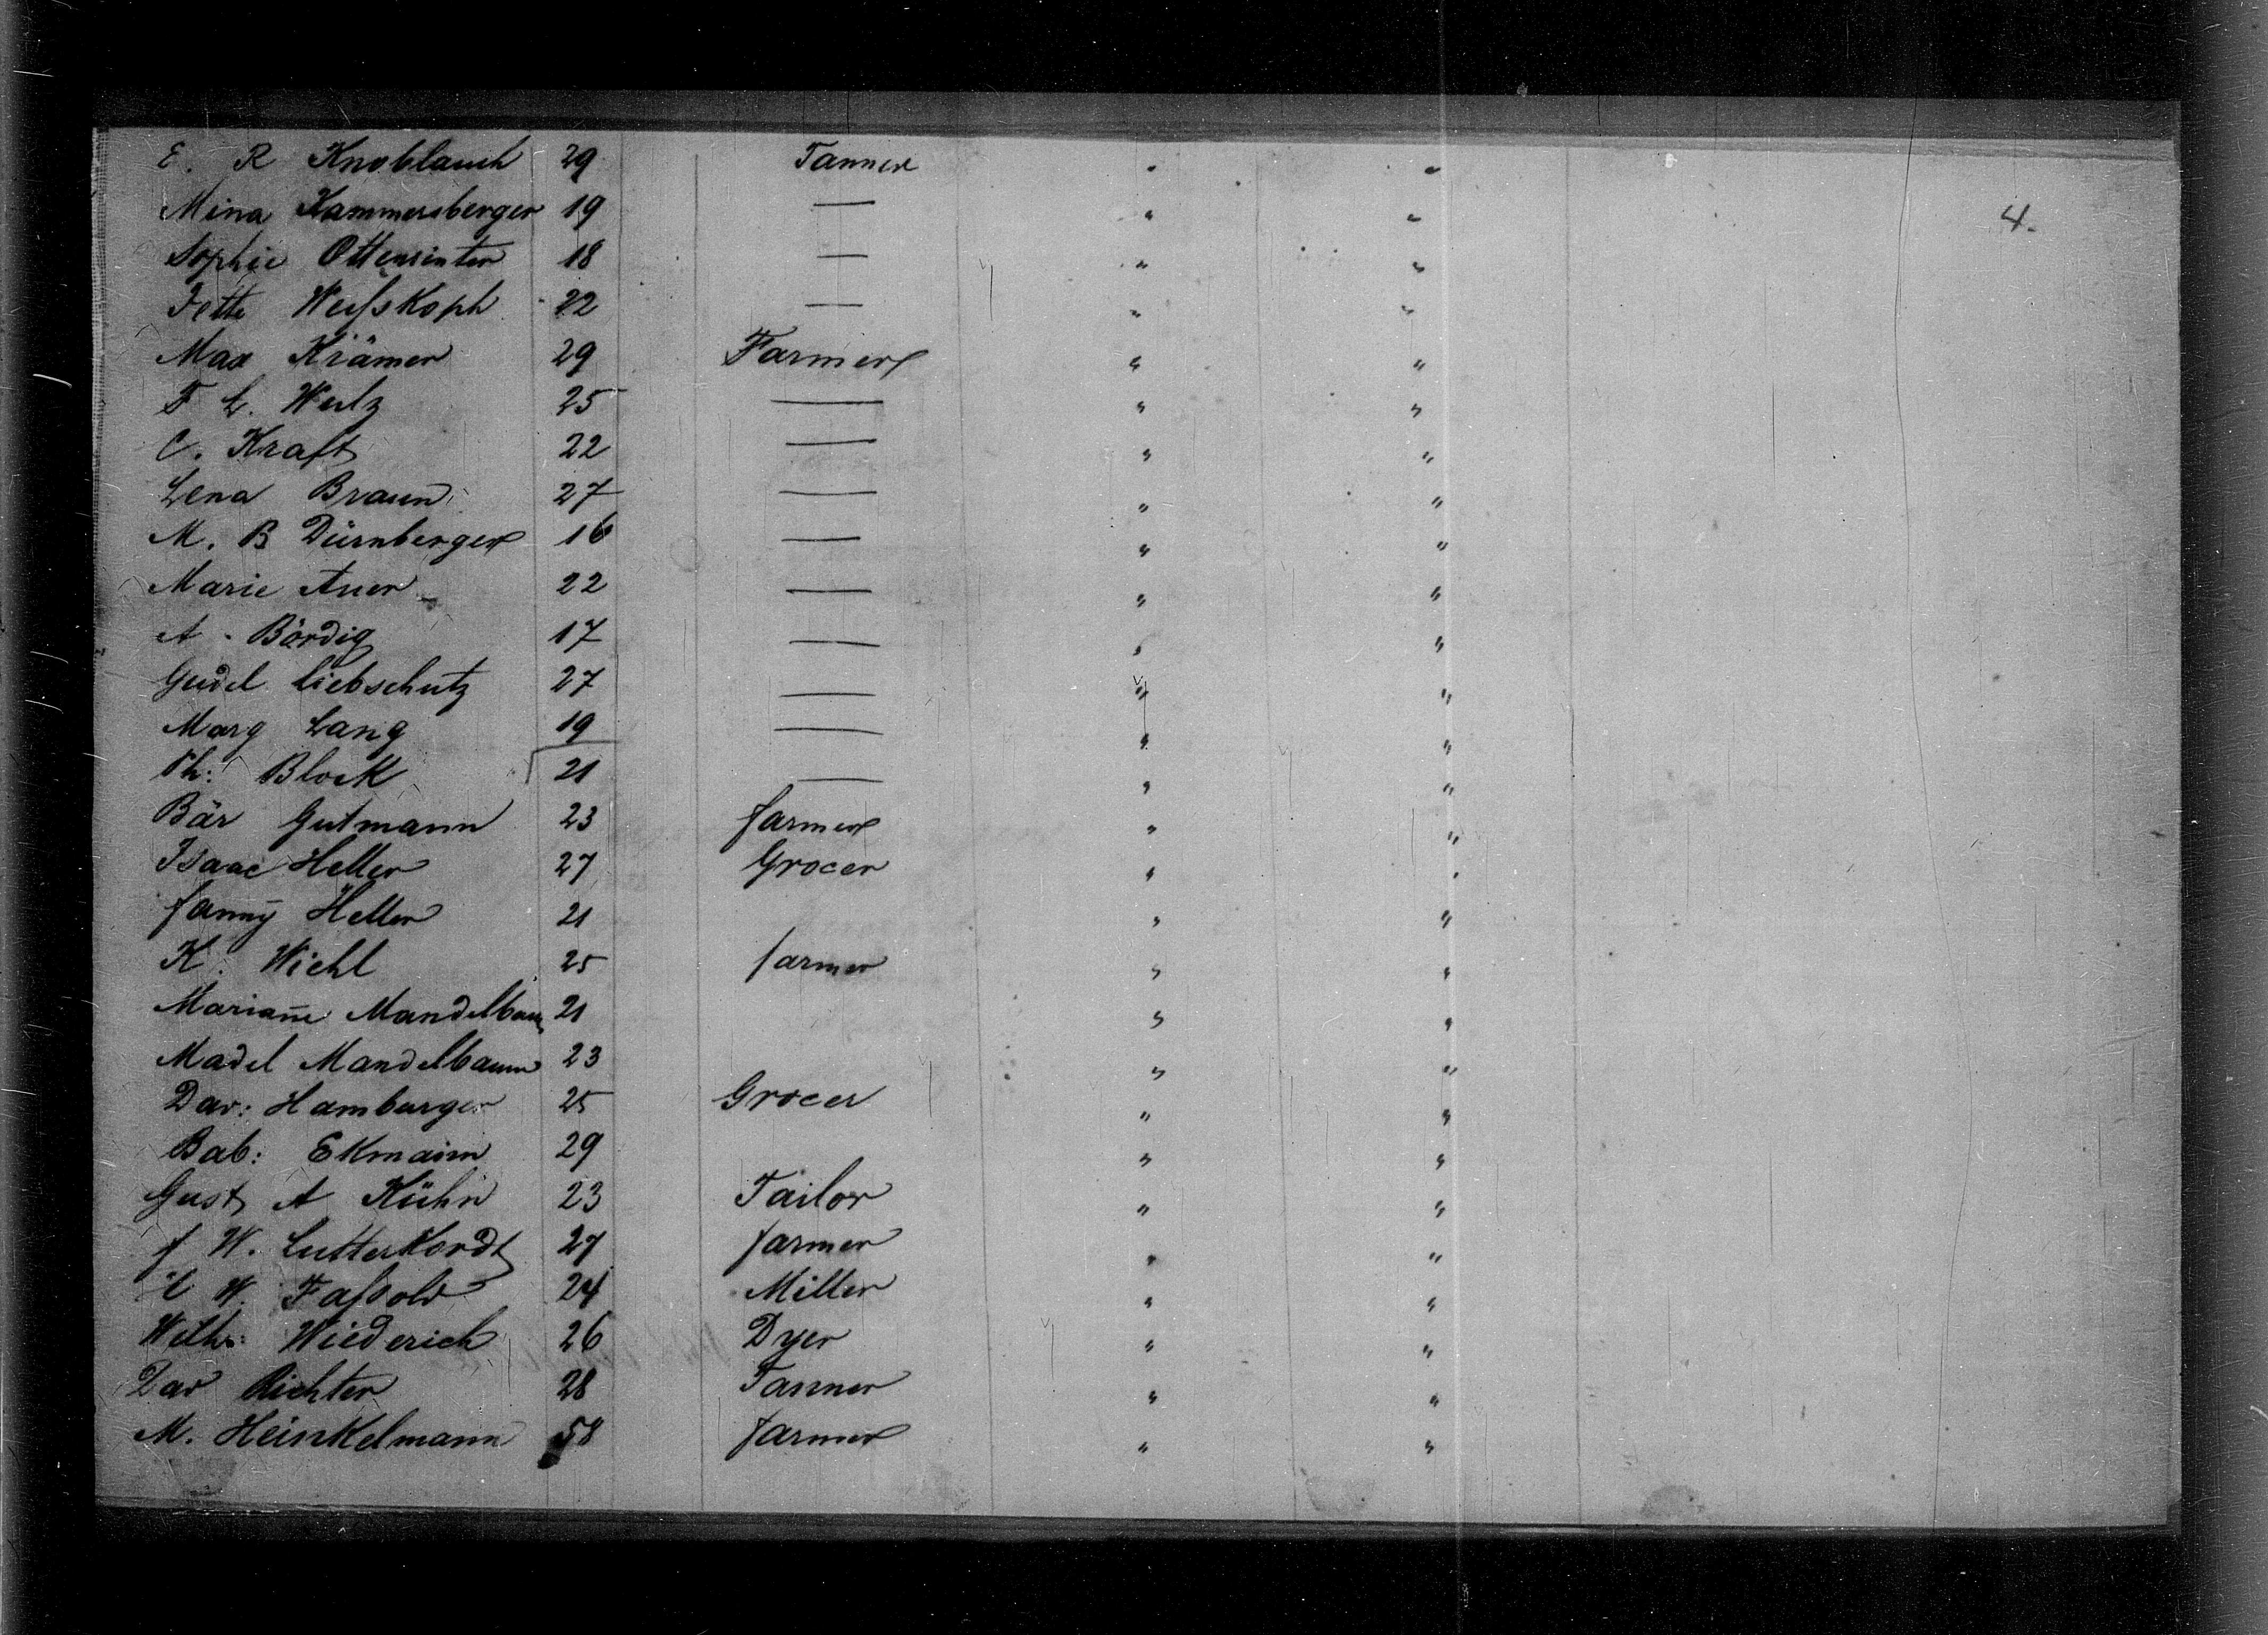 E. R Knoblauch 29 Tanner " "
Mina Kammersberger 19 — " " 4.
Sophie Ottensinter 18 — " "
Jette Weißkoph 22 — " "
Max Krämer 29 Farmer " "
F L. Welz 25 — " "
C. Kraft 22 — " "
Lena Braun 27 — " "
M. B Dürnberger 16 — " "
Marie Auer 22 — " "
A. Bördig 17 — " "
Gudel Liebschutz 27 — " "
Marg Lang 19 — " "
Th: Block 21 — " "
Bär Gutmann 23 farmer " "
Isaac Heller 27 Grocer " "
fanny Heller 21 " "
K. Wiehl 25 farmer " "
Mariañe Mandelbaum 21 " "
Madel Mandelbaum 23 " "
Dav: Hamburger 25 Grocer " "
Bab: Ekmaim 29 " "
Gust A Kühn 23 Tailor " "
f W. Lutterkordt 27 farmer " "
W. Faßold 24 Miller " "
Wilh: Wiederich 26 Dyer " "
Dav Richter 28 Tanner " "
M. Heinkelmann 58 farmer " "